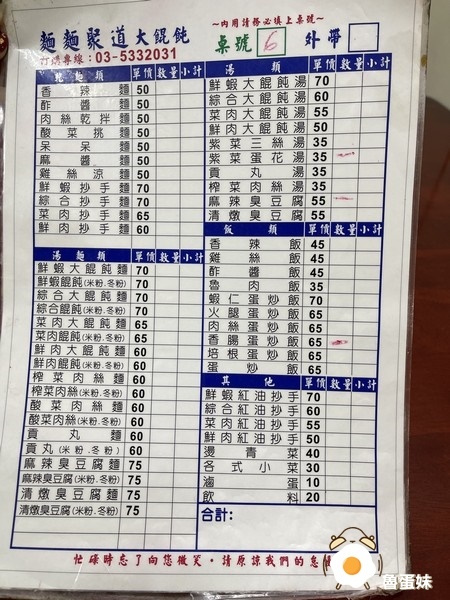 麵麵聚道大餛飩
訂購專線：03-5332031
～內用請務必填上桌號～
桌號 6 外帶
乾麵類 單價 數量 小計
香辣麵 50
酢醬麵 50
肉絲乾拌麵 50
酸菜挑麵 50
呆呆麵 50
麻醬麵 50
雞絲涼麵 50
鮮蝦抄手麵 70
綜合抄手麵 70
菜肉抄手麵 65
鮮肉抄手麵 60
湯麵類 單價 數量 小計
鮮蝦大餛飩麵 70
鮮蝦餛飩(米粉.冬粉) 70
綜合大餛飩麵 70
綜合餛飩(米粉.冬粉) 70
菜肉大餛飩麵 65
菜肉餛飩(米粉.冬粉) 65
鮮肉大餛飩麵 60
鮮肉餛飩(米粉.冬粉) 60
榨菜肉絲麵 60
榨菜肉絲(米粉.冬粉) 60
酸菜肉絲麵 60
酸菜肉絲(米粉.冬粉) 60
貢丸麵 60
貢丸(米粉.冬粉) 60
麻辣臭豆腐麵 75
麻辣臭豆腐(米粉.冬粉) 75
清燉臭豆腐麵 75
清燉臭豆腐(米粉.冬粉) 75
湯類 單價 數量 小計
鮮蝦大餛飩湯 70
綜合大餛飩湯 60
菜肉大餛飩湯 55
鮮肉大餛飩湯 50
紫菜三絲湯 35
紫菜蛋花湯 35
貢丸湯 35
榨菜肉絲湯 35
麻辣臭豆腐 55
清燉臭豆腐 55
飯類 單價 數量 小計
香辣飯 45
雞絲飯 45
酢醬飯 45
魯肉飯 35
蝦仁蛋炒飯 70
火腿蛋炒飯 65
肉絲蛋炒飯 65
香腸蛋炒飯 65
培根蛋炒飯 65
蛋炒飯 60
其他 單價 數量 小計
鮮蝦紅油抄手 70
綜合紅油抄手 60
菜肉紅油抄手 55
鮮肉紅油抄手 50
燙青菜 40
各式小菜 30
滷蛋 10
飲料 20
合計：
忙碌時忘了向您微笑，請原諒我們的怠
魯蛋妹